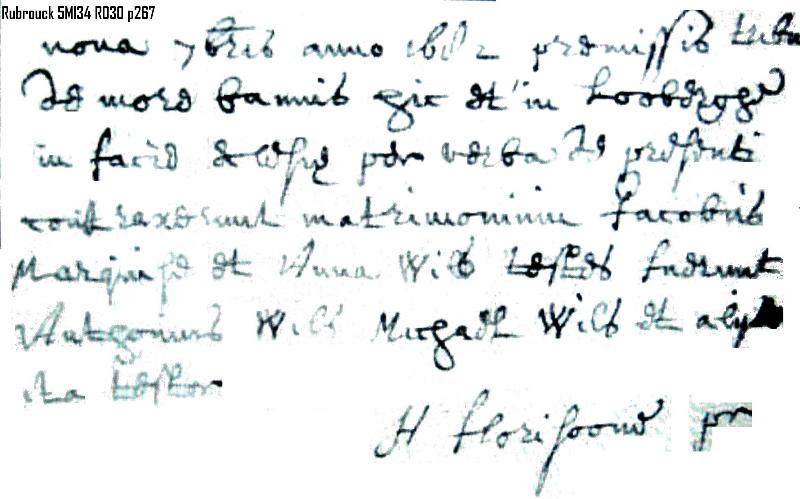 Rubrouck 5MI34 R030 p267
nona 7bris anno premissis tribus
de more bannis hic et in Loobergh
in facie ecclesię per verba de presenti
contraxerunt matrimonium Jacobus
Marquise et Anna Wils testes fuerunt
Anthonius Wils Michael Wils et alij
ita testor
H florisoone pr